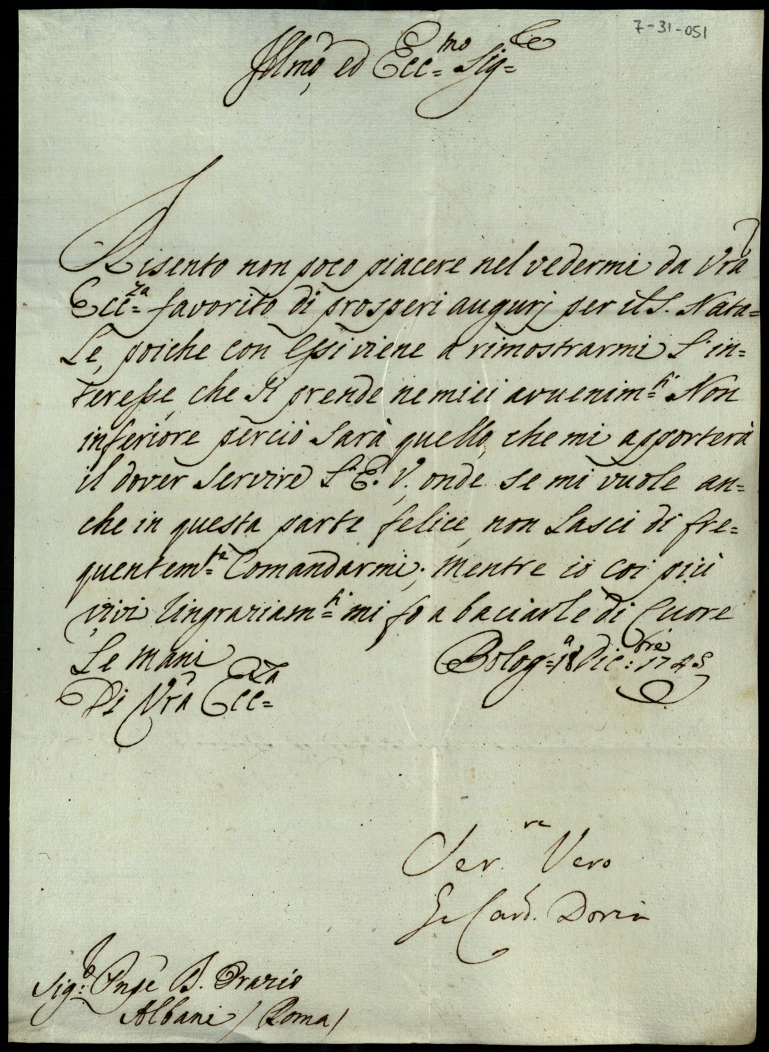 7-31-051
Illmo, ed Ecc=mo Sig=re
Risento non poco piacere nel vedermi da Vra
Ecc=za favorito di prosperi augurj per il S. Nata=
le, poiche con essi viene a rimostrarmi l'in=
teresse, che si prende ne miei avvenim=ti Non
inferiore perciò sarà quello, che mi apporterà
il dover servire l'E. V., onde se mi vuole an=
che in questa parte felice, non lasci di fre=
quentem=te Comandarmi; mentre io coi più
vivi ringraziam=ti mi fo a baciarle di Cuore
le mani Bolog=a 18 Dic:bre 1745
Di Vra Ecc=za
Ser.re Vero
G Card. Doria
Sig:e Pnpe D. Orazio
Albani / Roma /